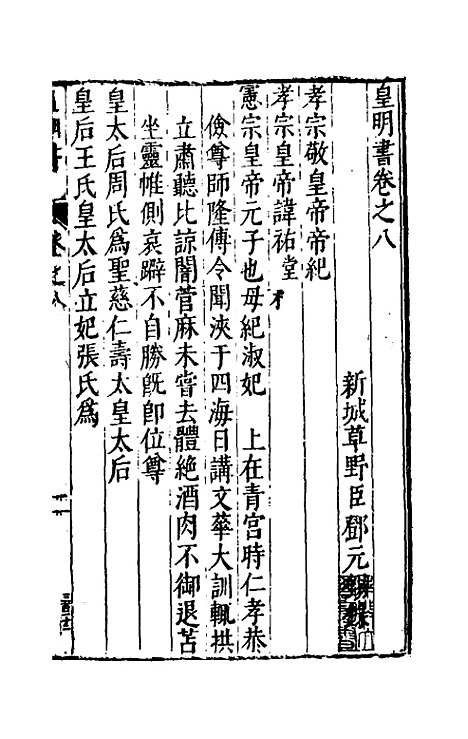 皇明書卷之八
新城草野臣鄧元
孝宗敬皇帝帝紀
孝宗皇帝諱祐堂
憲宗皇帝元子也母紀淑妃　上在青宮時仁孝恭
儉尊師隆傅令聞浹于四海日講文華大訓輒拱
立肅聽比諒闇菅麻未嘗去體絶酒肉不御退苫
坐靈帷側哀躃不自勝旣卽位尊
皇太后周氏爲聖慈仁壽太皇太后
皇后王氏皇太后立妃張氏爲
卷之八